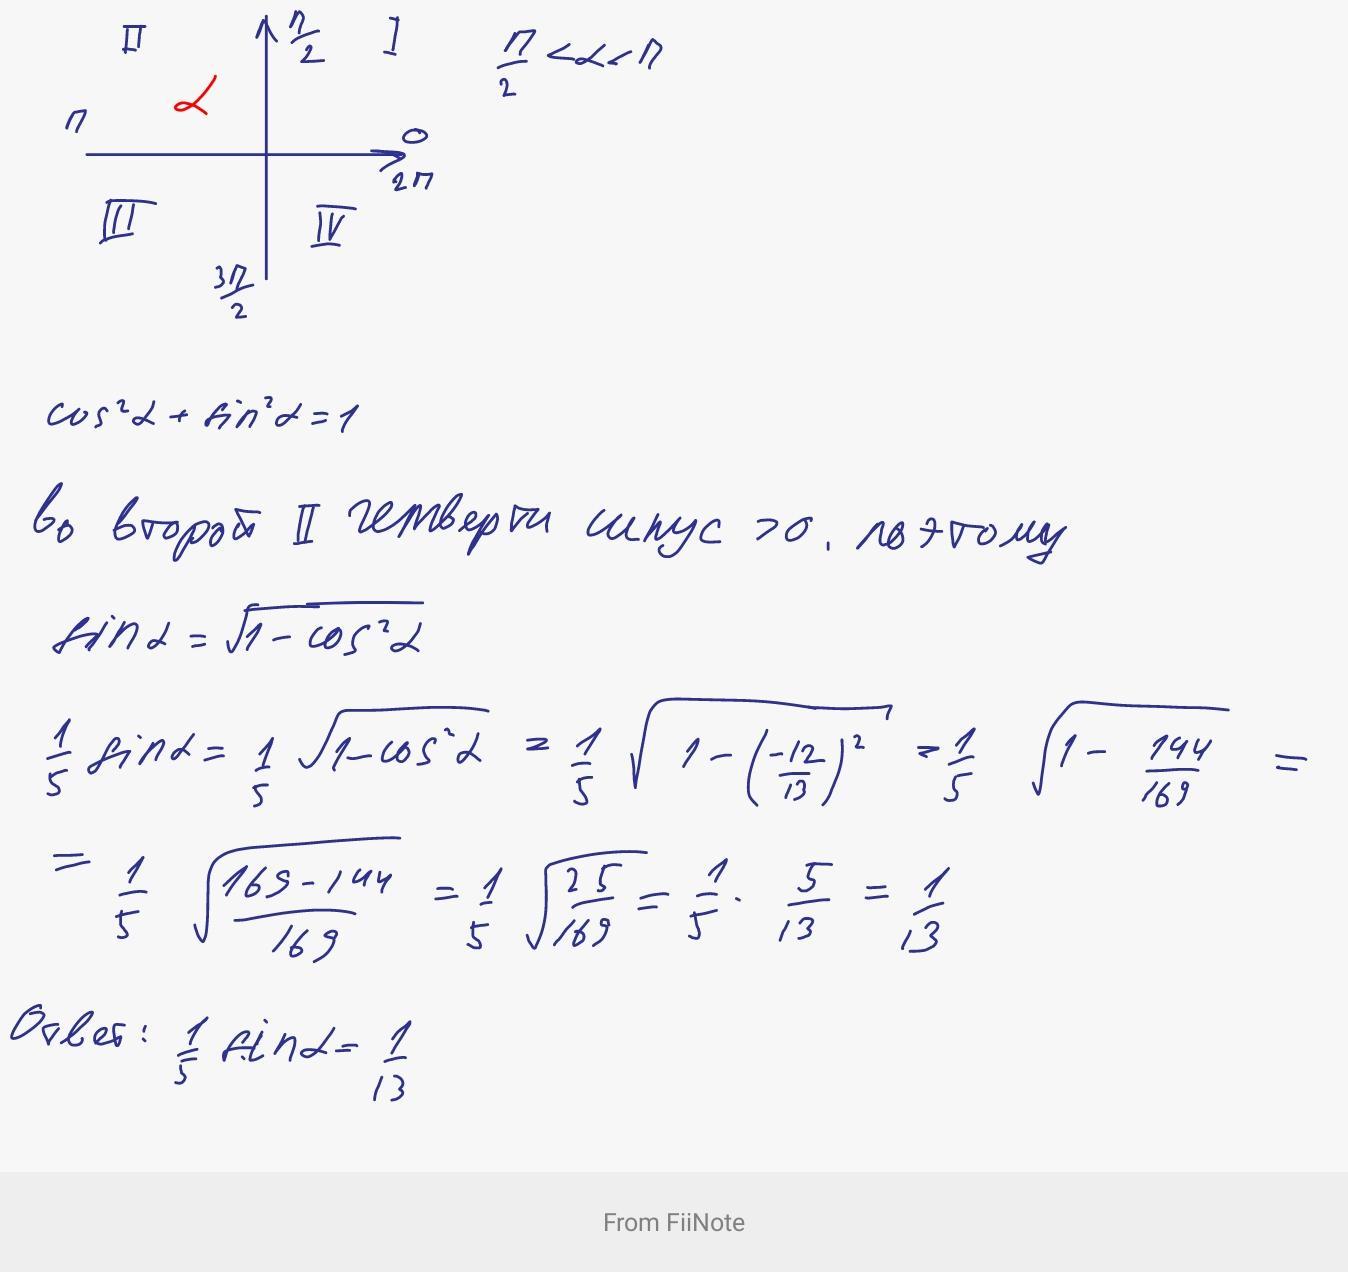 II π/2 I π/2 < α < π
α
π 0
2π
III IV
3π/2
cos²α + sin²α = 1
Во второй II четверти синус >0, поэтому
sinα = √(1 - cos²α)
1/5 sinα = 1/5 √(1 - cos²α) = 1/5 √(1 - (-12/13)²) = 1/5 √(1 - 144/169) =
= 1/5 √((169 - 144)/169) = 1/5 √(25/169) = 1/5 · 5/13 = 1/13
Ответ: 1/5 sinα = 1/13
From FiiNote